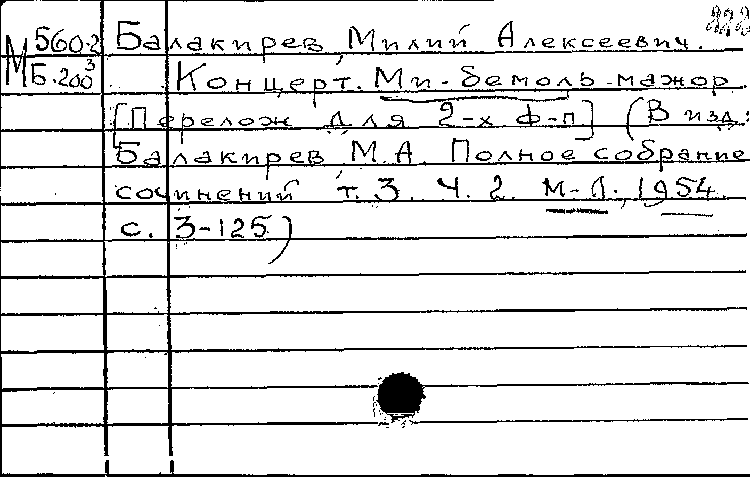 М 560-2 Балакирев, Милий Алексеевич.
Б.200³ Концерт. Ми-бемоль-мажор.
[Перелож для 2-х ф-п] (В изд:
Балакирев, М.А. Полное собрание
сочинений т. 3. Ч. 2. М-Л., 1954.
с. 3-125)